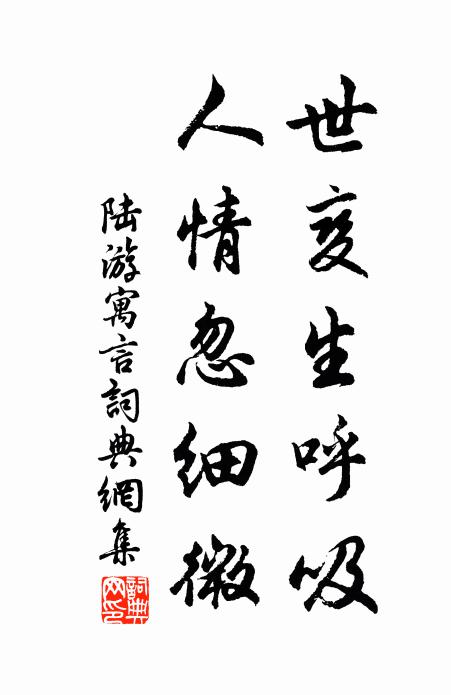 世变生呼吸
人情忽细微
陆游寓言詞典網集
詞典网印